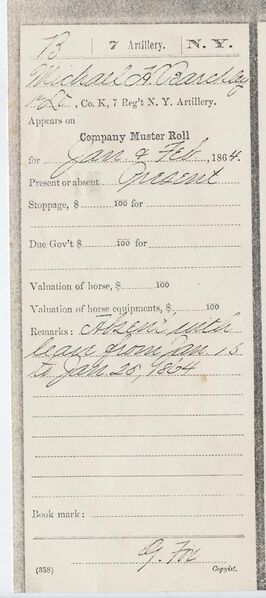 B | 7 Artillery. | N. Y.
Michael H. Barckley
1 Lt, Co. K, 7 Reg't N. Y. Artillery.
Appears on
Company Muster Roll
for Jan & Feb, 1864.
Present or absent Present
Stoppage, $ 100 for
Due Gov't $ 100 for
Valuation of horse, $ 100
Valuation of horse equipments, $ 100
Remarks: Absent with
leave from Jan. 15
to Jan 25, 1864
Book mark:
G. Fox
(358) Copyist.